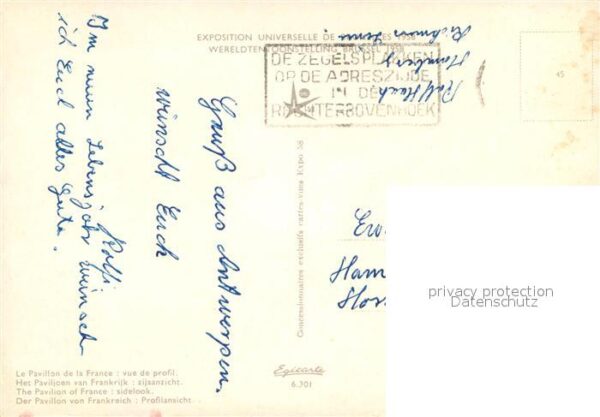 EXPOSITION UNIVERSELLE DE BRUXELLES 1958
WERELDTENTOONSTELLING BRUSSEL 1958
DE ZEGELS PLAKKEN
OP DE ADRESZIJDE
IN DE
RECHTERBOVENHOEK
45
Rolf
Hamburg
Gruß aus Antwerpen.
wünscht Euch
Rolf
Im neuen Lebensjahr wünsch
ich Euch alles Gute.
Concessionnaires exclusifs cartes-vues Expo 58
Ham
privacy protection
Datenschutz
Hor
Le Pavillon de la France : vue de profil.
Het Paviljoen van Frankrijk : zijaanzicht.
The Pavilion of France : sidelook.
Der Pavillon von Frankreich : Profilansicht.
Egicarte
6.301